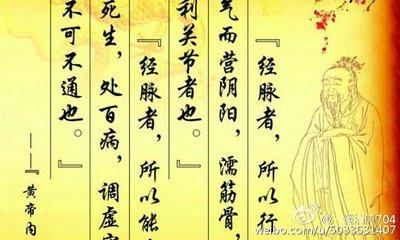 『经脉者，所以行
气而营阴阳，濡筋骨，
利关节者也。』
『经脉者，所以能
死生，处百病，调虚
不可不通也。』
——『黄帝内
weibo.com/u/5033631407